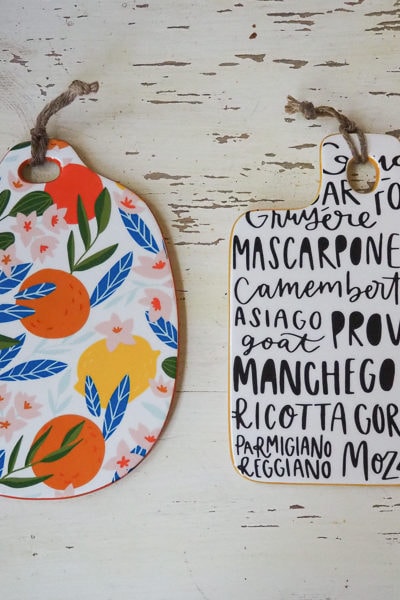 Gruyère
MASCARPONE
Camembert
ASIAGO
goat PROV
MANCHEGO
RICOTTA GOR
PARMIGIANO
REGGIANO MOZ